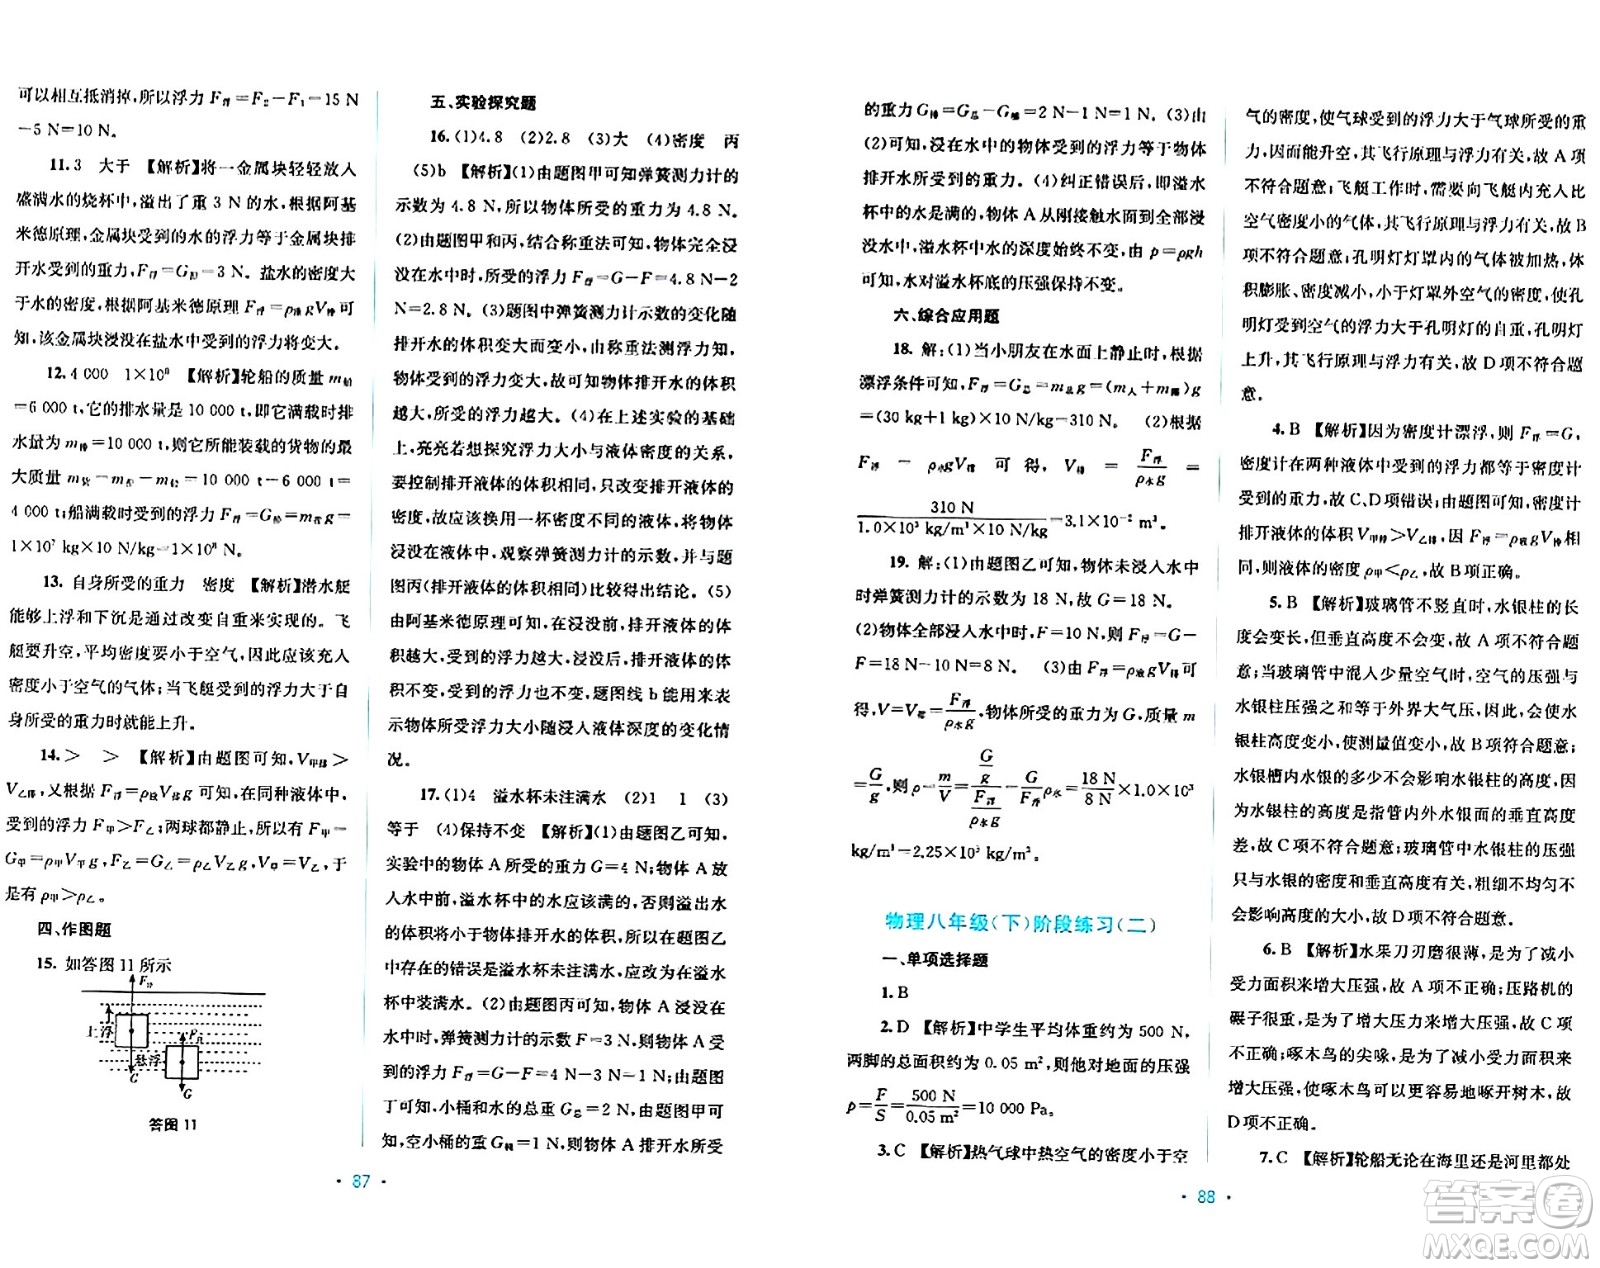 可以相互抵消掉,所以浮力 F浮=F₂-F₁=15 N
-5 N=10 N。
11.3　大于　【解析】将一金属块轻轻放入
盛满水的烧杯中,溢出了重 3 N 的水,根据阿基
米德原理,金属块受到的水的浮力等于金属块排
开水受到的重力,F浮=G排=3 N。盐水的密度大
于水的密度,根据阿基米德原理 F浮=ρ液gV排可
知,该金属块浸没在盐水中受到的浮力将变大。
12.4 000　1×10⁸　【解析】轮船的质量 m船
=6 000 t,它的排水量是 10 000 t,即它满载时排
水量为 m排=10 000 t,则它所能装载的货物的最
大质量 m货=m排-m船=10 000 t-6 000 t=
4 000 t;船满载时受到的浮力 F浮=G排=m排g=
1×10⁷ kg×10 N/kg=1×10⁸ N。
13. 自身所受的重力　密度　【解析】潜水艇
能够上浮和下沉是通过改变自重来实现的。飞
艇要升空,平均密度要小于空气,因此应该充入
密度小于空气的气体;当飞艇受到的浮力大于自
身所受的重力时就能上升。
14.>　>　【解析】由题图可知,V甲排>
V乙排,又根据 F浮=ρ液V排g 可知,在同种液体中
受到的浮力 F甲>F乙;两球都静止,所以有 F甲=
G甲=ρ甲V甲g,F乙=G乙=ρ乙V乙g,V甲=V乙,于
是有 ρ甲>ρ乙。
四、作图题
15. 如答图 11 所示
F浮
上浮
F浮
悬浮
G
G
答图 11
· 87 ·
五、实验探究题
16.(1)4.8　(2)2.8　(3)大　(4)密度　丙
(5)b　【解析】(1)由题图甲可知弹簧测力计的
示数为 4.8 N,所以物体所受的重力为 4.8 N。
(2)由题图甲和丙,结合称重法可知,物体完全浸
没在水中时,所受的浮力 F浮=G-F=4.8 N-2
N=2.8 N。(3)题图中弹簧测力计示数的变化随
排开水的体积变大而变小,由称重法测浮力可知
物体受到的浮力变大,故可知物体排开水的体积
越大,所受的浮力越大。(4)在上述实验的基础
上,亮亮若想探究浮力大小与液体密度的关系,
要控制排开液体的体积相同,只改变排开液体的
密度,故应该换用一杯密度不同的液体,将物体
浸没在液体中,观察弹簧测力计的示数,并与题
图丙(排开液体的体积相同)比较得出结论。(5)
由阿基米德原理可知,在浸没前,排开液体的体
积越大,受到的浮力越大,浸没后,排开液体的体
积不变,受到的浮力也不变,题图线 b 能用来表
示物体所受浮力大小随浸入液体深度的变化情
况。
17.(1)4　溢水杯未注满水　(2)1　1　(3)
等于　(4)保持不变　【解析】(1)由题图乙可知,
实验中的物体 A 所受的重力 G=4 N;物体 A 放
入水中前,溢水杯中的水应该满的,否则溢出水
的体积将小于物体排开水的体积,所以在题图乙
中存在的错误是溢水杯未注满水,应改为在溢水
杯中装满水。(2)由题图丙可知,物体 A 浸没在
水中时,弹簧测力计的示数 F=3 N,物体 A 受
到的浮力 F浮=G-F=4 N-3 N=1 N;由题图
丁可知,小桶和水的总重 G总=2 N,由题图甲可
知,空小桶的重 G桶=1 N,则物体 A 排开水所受
的重力 G排=G总-G桶=2 N-1 N=1 N。(3)由
(2)可知,浸在水中的物体受到的浮力等于物体
排开水所受的重力。(4)纠正错误后,即溢水
杯中的水是满的,物体 A 从刚接触水面到全部浸
没水中,溢水杯中水的深度始终不变,由 p=ρgh
可知,水对溢水杯底的压强保持不变。
六、综合应用题
18. 解:(1)当小朋友在水面上静止时,根据
漂浮条件可知,F浮=G总=m总g=(m人+m圈)g
=(30 kg+1 kg)×10 N/kg=310 N。　(2)根据
F浮 = ρ水gV排 可得, V排 = F浮/ρ水g =
310 N/(1.0×10³ kg/m³×10 N/kg)=3.1×10⁻² m³。
19. 解:(1)由题图乙可知,物体未浸入水中
时弹簧测力计的示数为 18 N,故 G=18 N。
(2)物体全部浸入水中时,F=10 N,则 F浮=G-
F=18 N-10 N=8 N。　(3)由 F浮=ρ液gV排可
得,V=V排=F浮/ρ水g,物体所受的重力为 G,质量 m
=G/g,则 ρ=m/V=(G/g)/(F浮/ρ水g)=G/F浮 ρ水=18 N/8 N×1.0×10³
kg/m³=2.25×10³ kg/m³。
物理八年级(下)阶段练习(二)
一、单项选择题
1.B
2.D　【解析】中学生平均体重约为 500 N,
两脚的总面积约为 0.05 m²,则他对地面的压强
p=F/S=500 N/0.05 m²=10 000 Pa。
3.C　【解析】热气球中热空气的密度小于空
· 88 ·
气的密度,使气球受到的浮力大于气球所受的重
力,因而能升空,其飞行原理与浮力有关,故 A 项
不符合题意;飞艇工作时,需要向飞艇内充入比
空气密度小的气体,其飞行原理与浮力有关,故 B
项不符合题意;孔明灯灯罩内的气体被加热,体
积膨胀、密度减小,小于灯罩外空气的密度,使孔
明灯受到空气的浮力大于孔明灯的自重,孔明灯
上升,其飞行原理与浮力有关,故 D 项不符合题
意。
4.B　【解析】因为密度计漂浮,则 F浮=G,
密度计在两种液体中受到的浮力都等于密度计
受到的重力,故 C、D 项错误;由题图可知,密度计
排开液体的体积 V甲排>V乙排,因 F浮=ρ液gV排相
同,则液体的密度 ρ甲<ρ乙,故 B 项正确。
5.B　【解析】玻璃管不竖直时,水银柱的长
度会变长,但垂直高度不会变,故 A 项不符合题
意;当玻璃管中混入少量空气时,空气的压强与
水银柱压强之和等于外界大气压,因此,会使水
银柱高度变小,使测量值变小,故 B 项符合题意;
水银槽内水银的多少不会影响水银柱的高度,因
为水银柱的高度是指管内外水银面的垂直高度
差,故 C 项不符合题意;玻璃管中水银的压强
只与水银的密度和高度有关,粗细不均匀不
会影响高度的大小,故 D 项不符合题意。
6.B　【解析】水果刀刃磨很薄,是为了减小
受力面积来增大压强,故 A 项不正确;压路机的
碾子很重,是为了增大压力来增大压强,故 C 项
不正确;啄木鸟的尖喙,是为了减小受力面积来
增大压强,使啄木鸟可以更容易地啄开树木,故
D 项不正确。
7.C　【解析】轮船无论在海里还是河里都处
答案圈
MXQE.COM